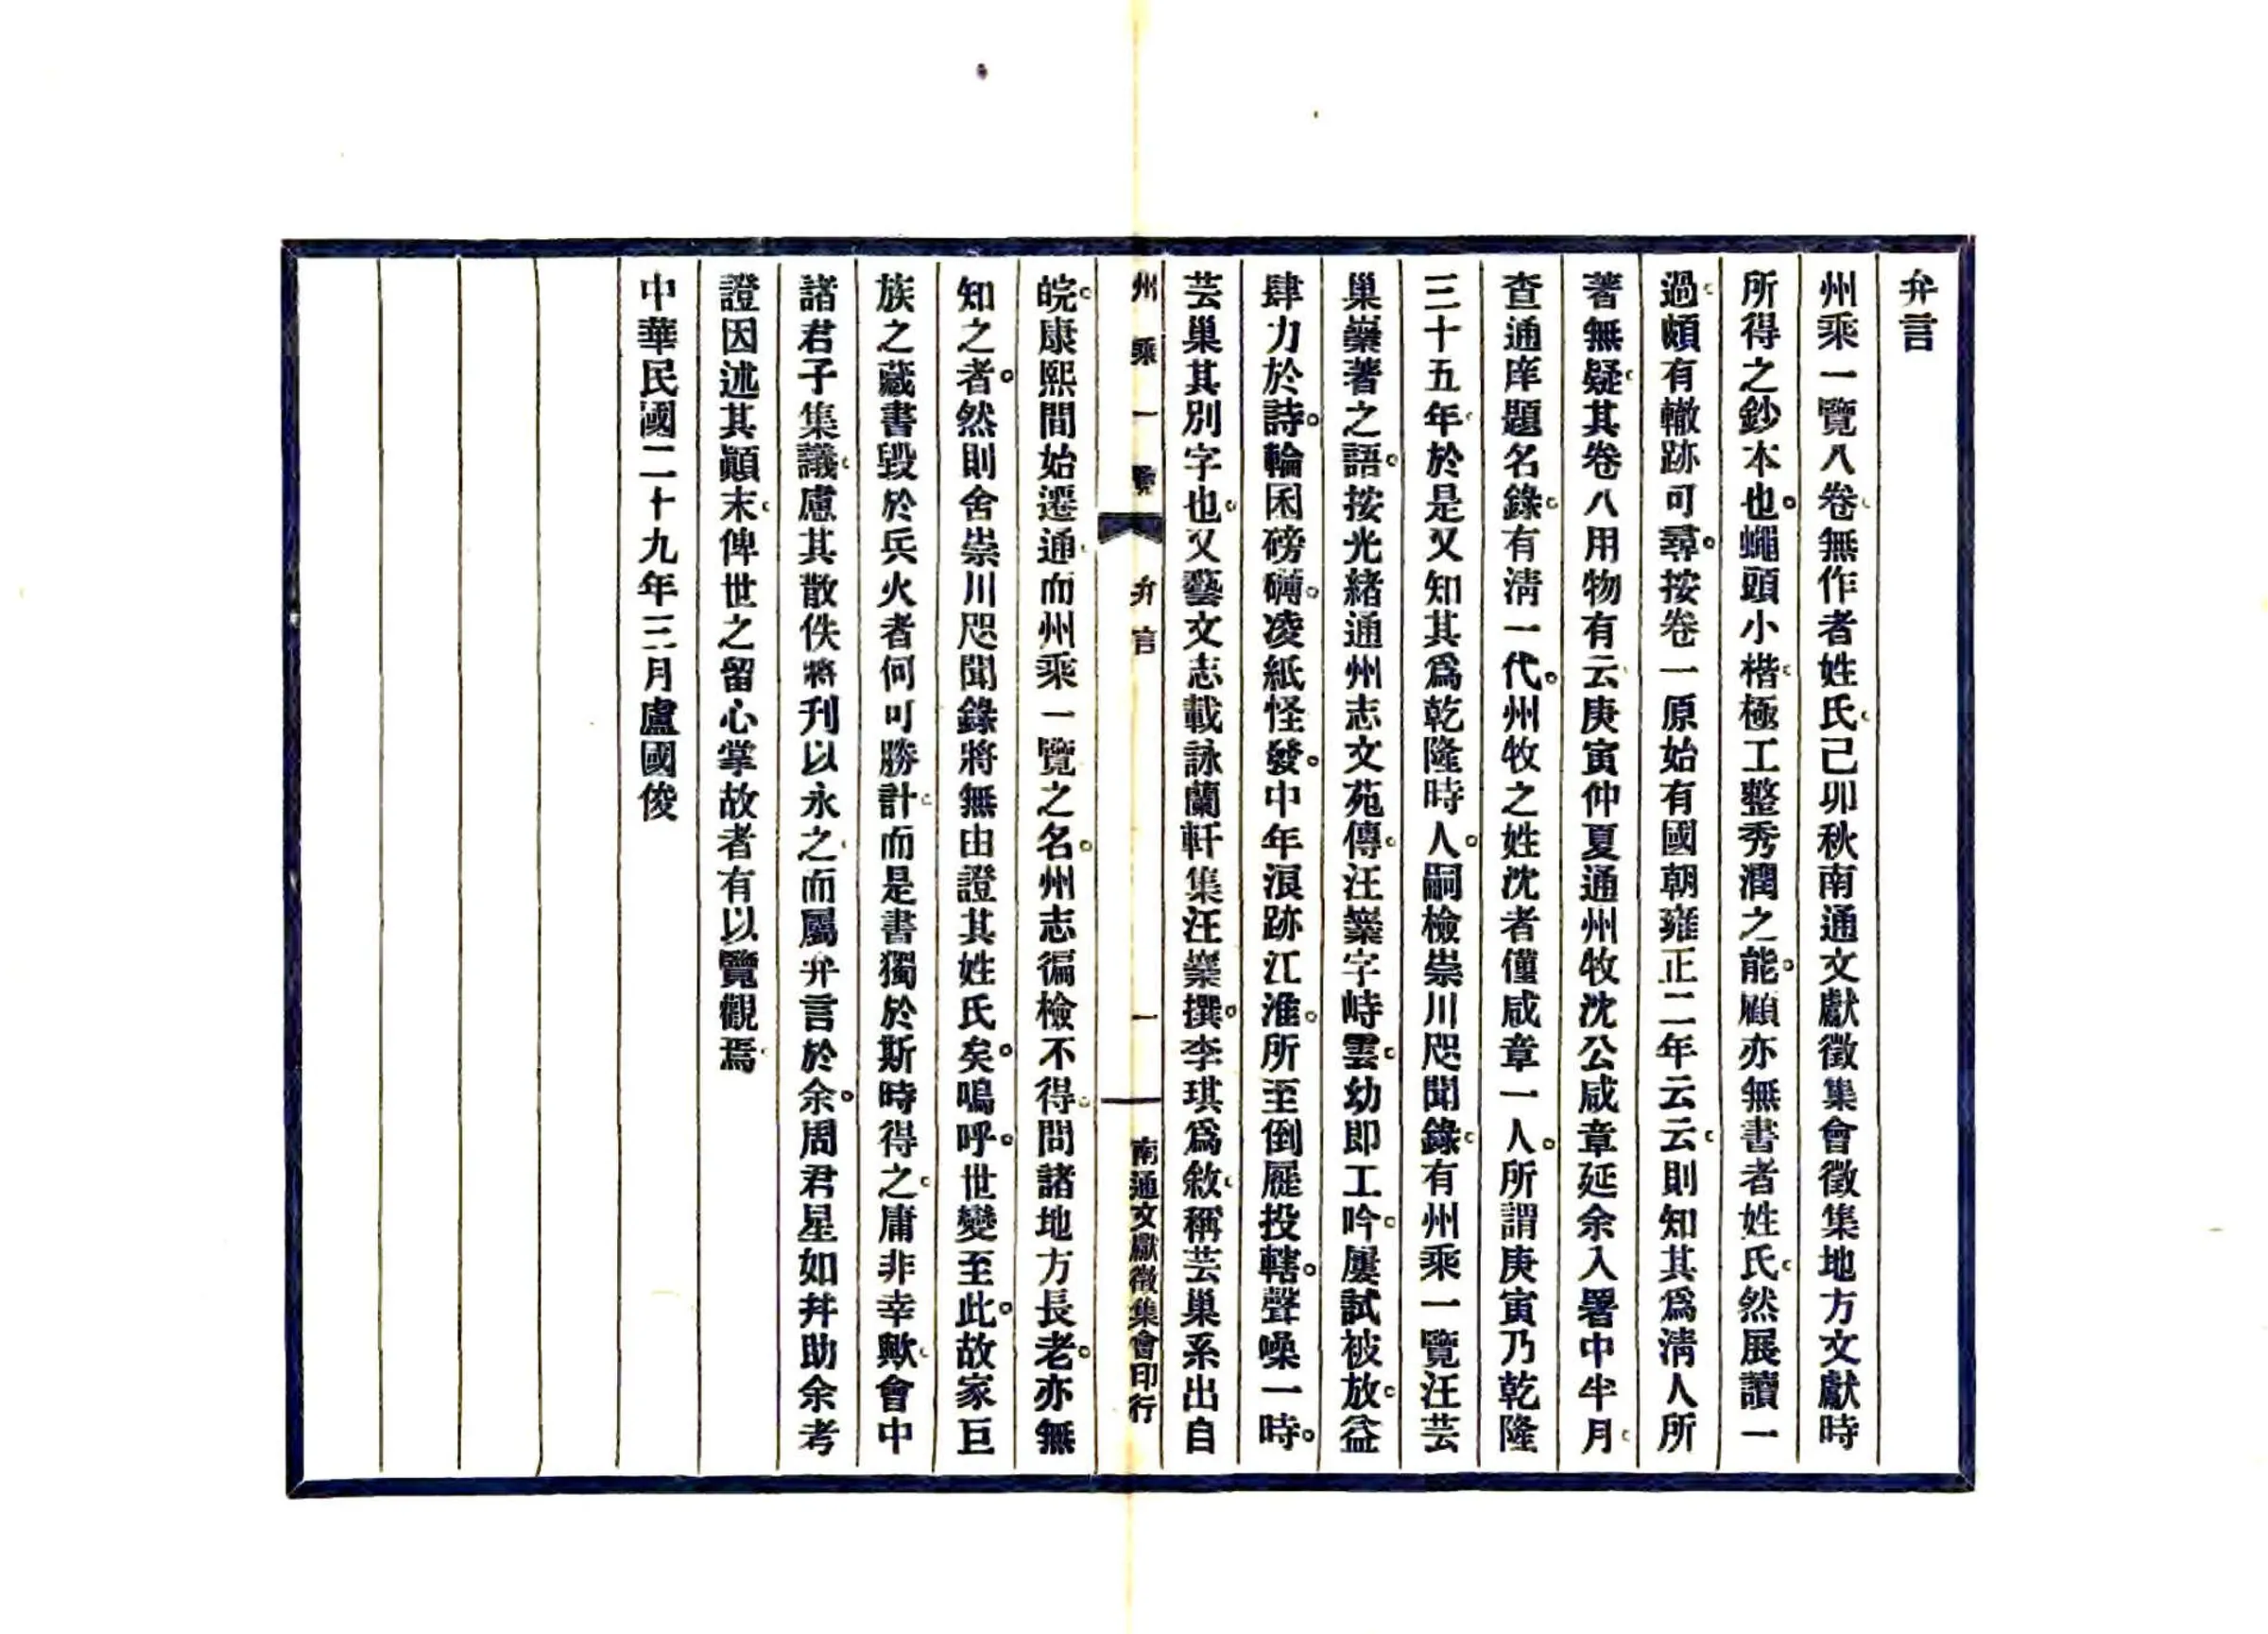 弁言
州乘一覽八卷。無作者姓氏。己卯秋南通文獻徵集會徵集地方文獻時
所得之鈔本也。蠅頭小楷。極工整秀潤之能。顧亦無書者姓氏。然展讀一
過。頗有轍跡可尋。按卷一原始有國朝雍正二年云云。則知其爲淸人所
著無疑。其卷八用物有云。庚寅仲夏通州牧沈公咸章延余入署中半月。
查通庠題名錄。有淸一代。州牧之姓沈者僅咸章一人。所謂庚寅乃乾隆
三十五年。於是又知其爲乾隆時人。嗣檢崇川咫聞錄。有州乘一覽汪芸
巢嶪著之語。按光緖通州志文苑傳。汪嶪字峙雲。幼即工吟。屢試被放。益
肆力於詩。輪囷磅礴。凌紙怪發。中年浪跡江淮。所至倒屣投轄。聲噪一時。
芸巢其別字也。又藝文志載詠蘭軒集汪嶪撰。李琪爲敘。稱芸巢系出自
州乘一覽 弁言 一 南通文獻徵集會印行
皖。康熙間始遷通。而州乘一覽之名。州志徧檢不得。問諸地方長老。亦無
知之者。然則舍崇川咫聞錄將無由證其姓氏矣。嗚呼。世變至此。故家巨
族之藏書毀於兵火者何可勝計。而是書獨於斯時得之。庸非幸歟。會中
諸君子集議。慮其散佚將刋以永之。而屬弁言於余。周君星如幷助余考
證因述其顚末。俾世之留心掌故者有以覽觀焉。
中華民國二十九年三月盧國俊